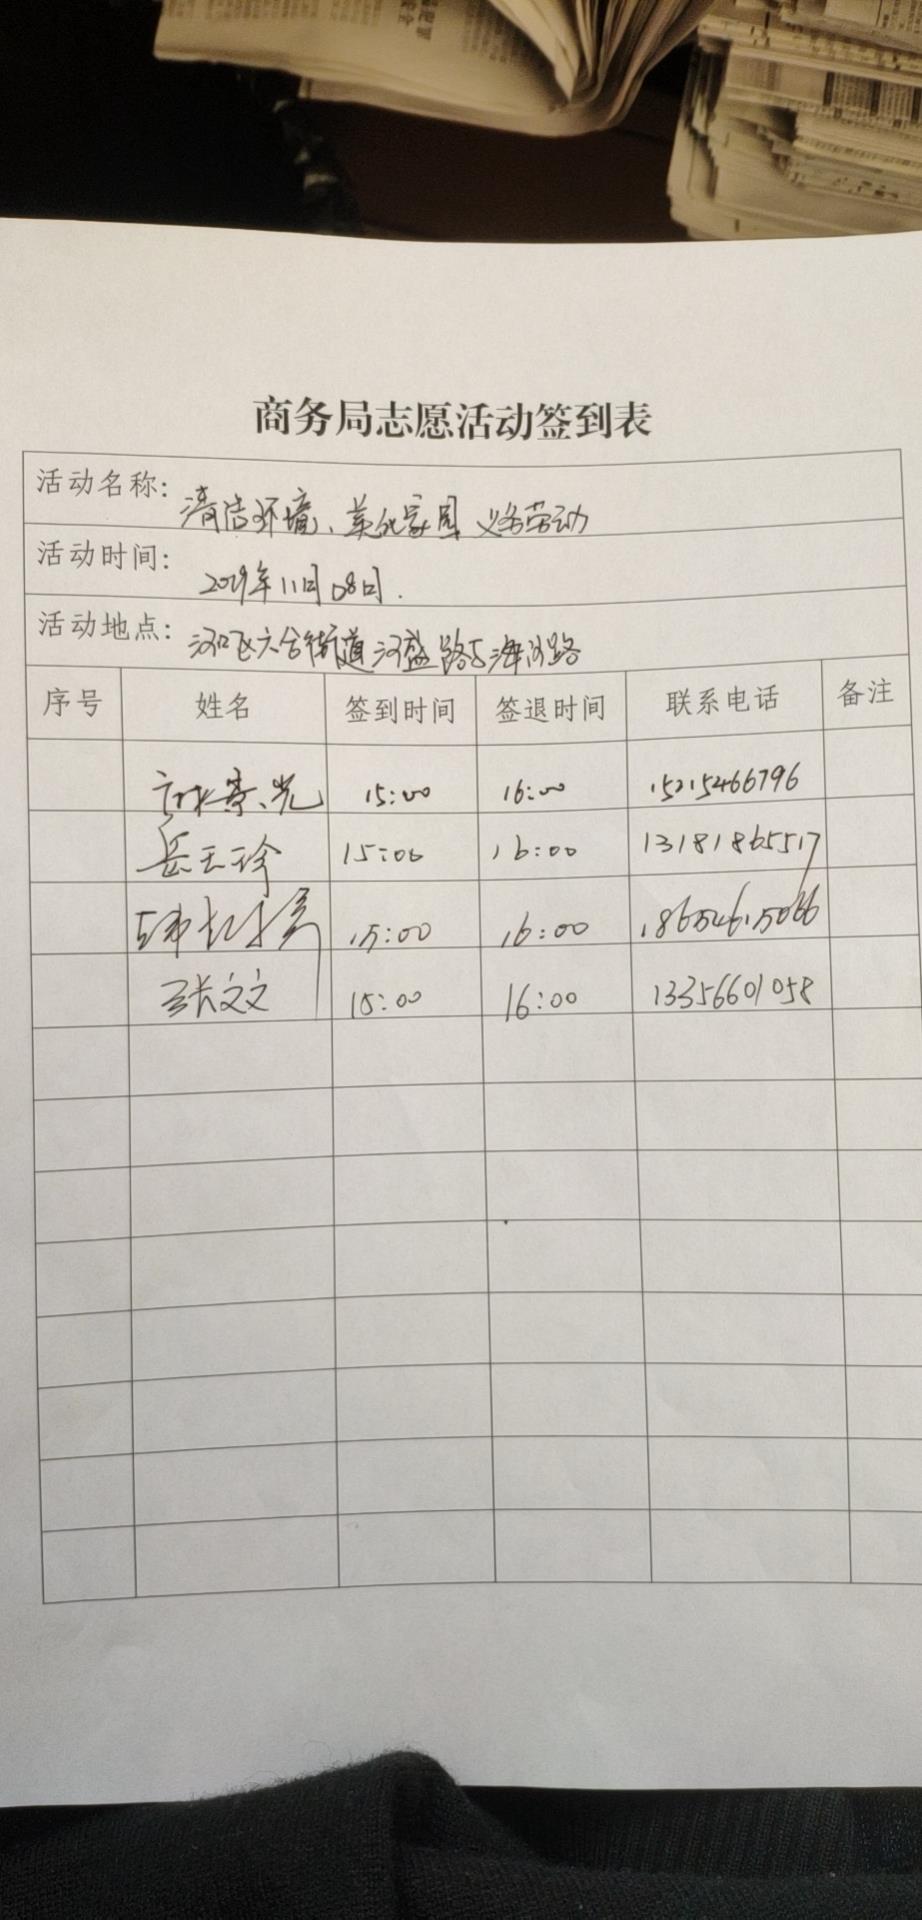 商务局志愿活动签到表
活动名称: 清洁环境、美化家园 义务劳动
活动时间: 2019年11月08日.
活动地点: 河口区六合街道河盛路与海河路
序号 姓名 签到时间 签退时间 联系电话 备注
15:00 16:00 15215466796
岳玉珍 15:00 16:00 13181865517
15:00 16:00
张文文 15:00 16:00 13356601058